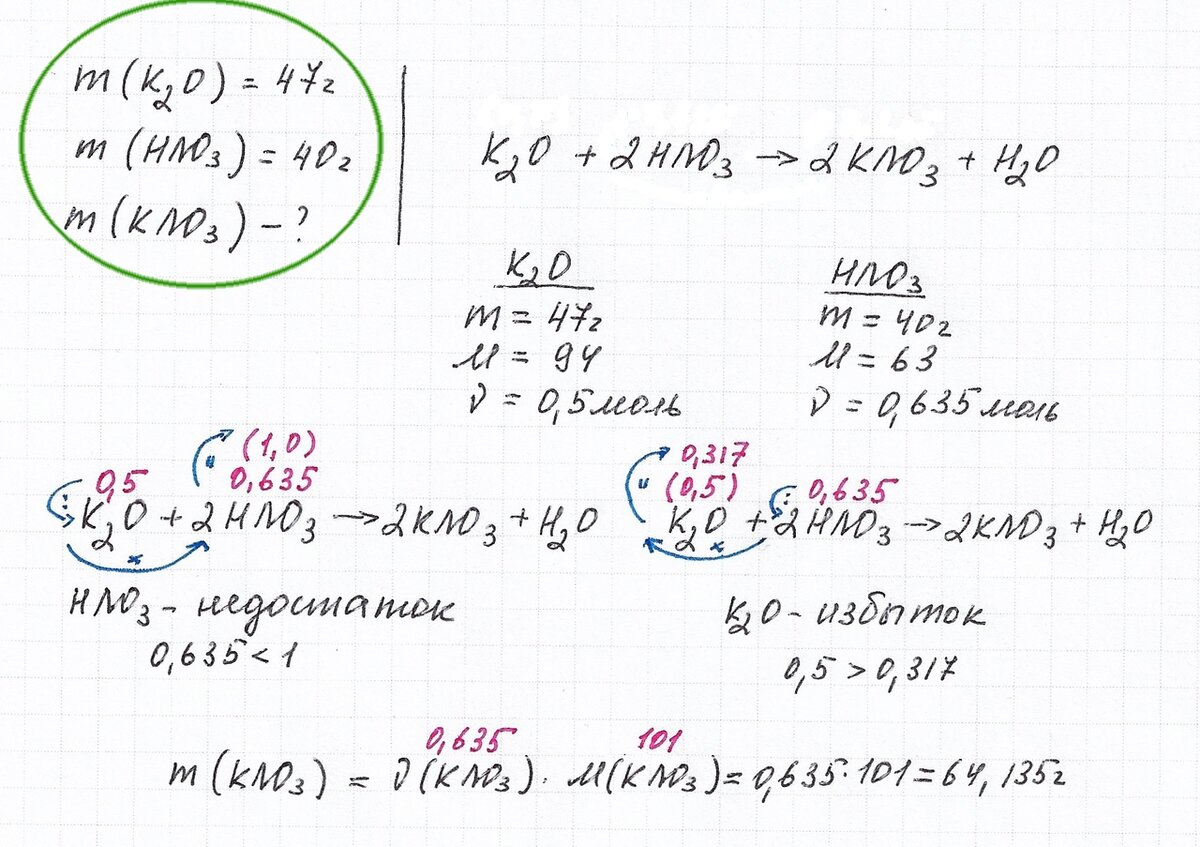 m(K₂O) = 47г
m(HNO₃) = 40г
m(KNO₃) - ?
K₂O + 2HNO₃ → 2KNO₃ + H₂O
K₂O
m = 47г
M = 94
ν = 0,5 моль
HNO₃
m = 40г
M = 63
ν = 0,635 моль
(1,0)
0,5 0,635
: "
K₂O + 2HNO₃ → 2KNO₃ + H₂O
×
HNO₃ - недостаток
0,635 < 1
0,317
(0,5) 0,635
" :
K₂O + 2HNO₃ → 2KNO₃ + H₂O
×
K₂O - избыток
0,5 > 0,317
0,635 101
m(KNO₃) = ν(KNO₃) · M(KNO₃) = 0,635 · 101 = 64,135г